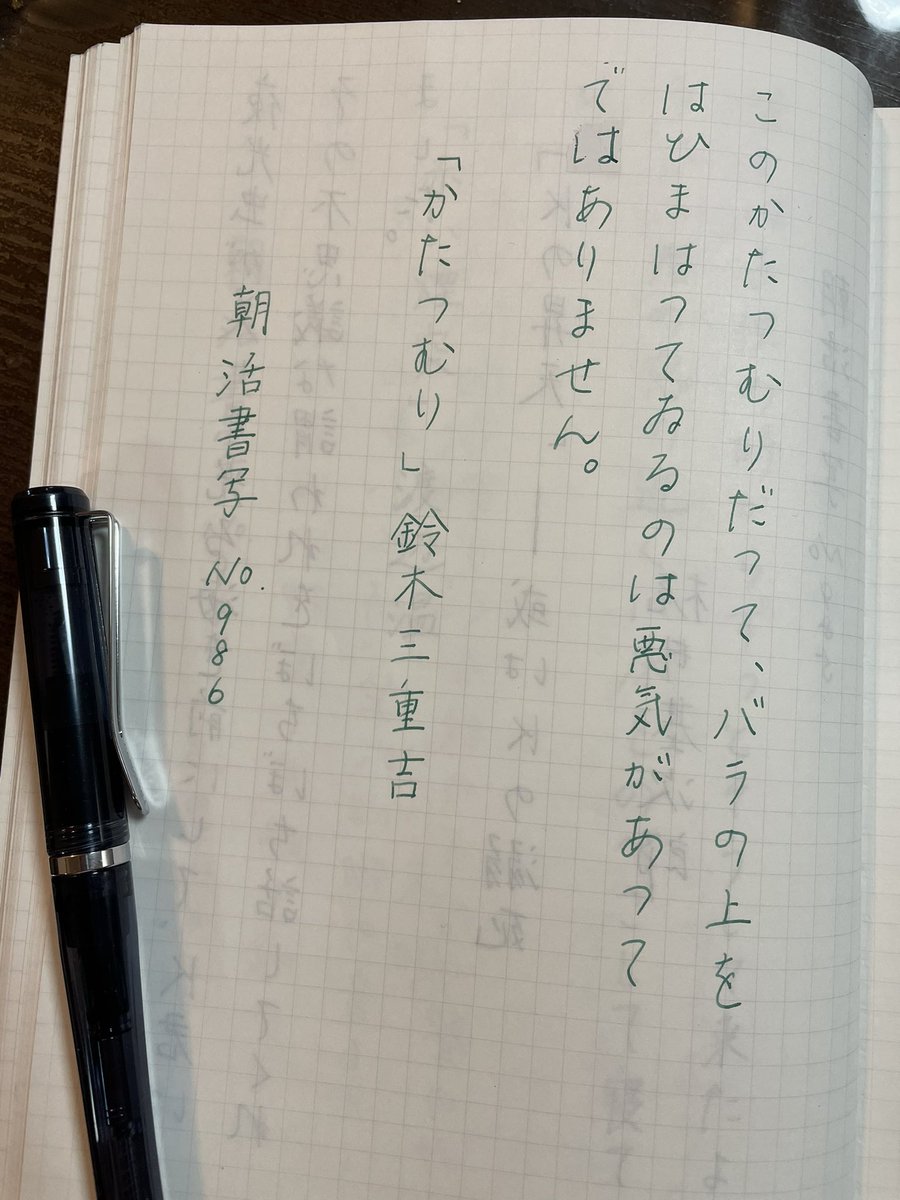 このかたつむりだつて、バラの上を
はひまはつてゐるのは悪気があつて
ではありません。
「かたつむり」鈴木三重吉
朝活書写 No.986